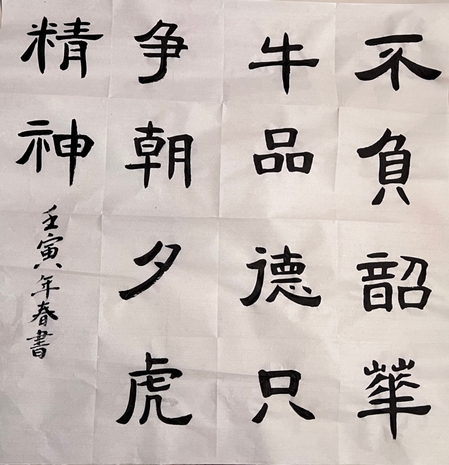 不负韶华
牛品德只
争朝夕虎
精神
壬寅年春書